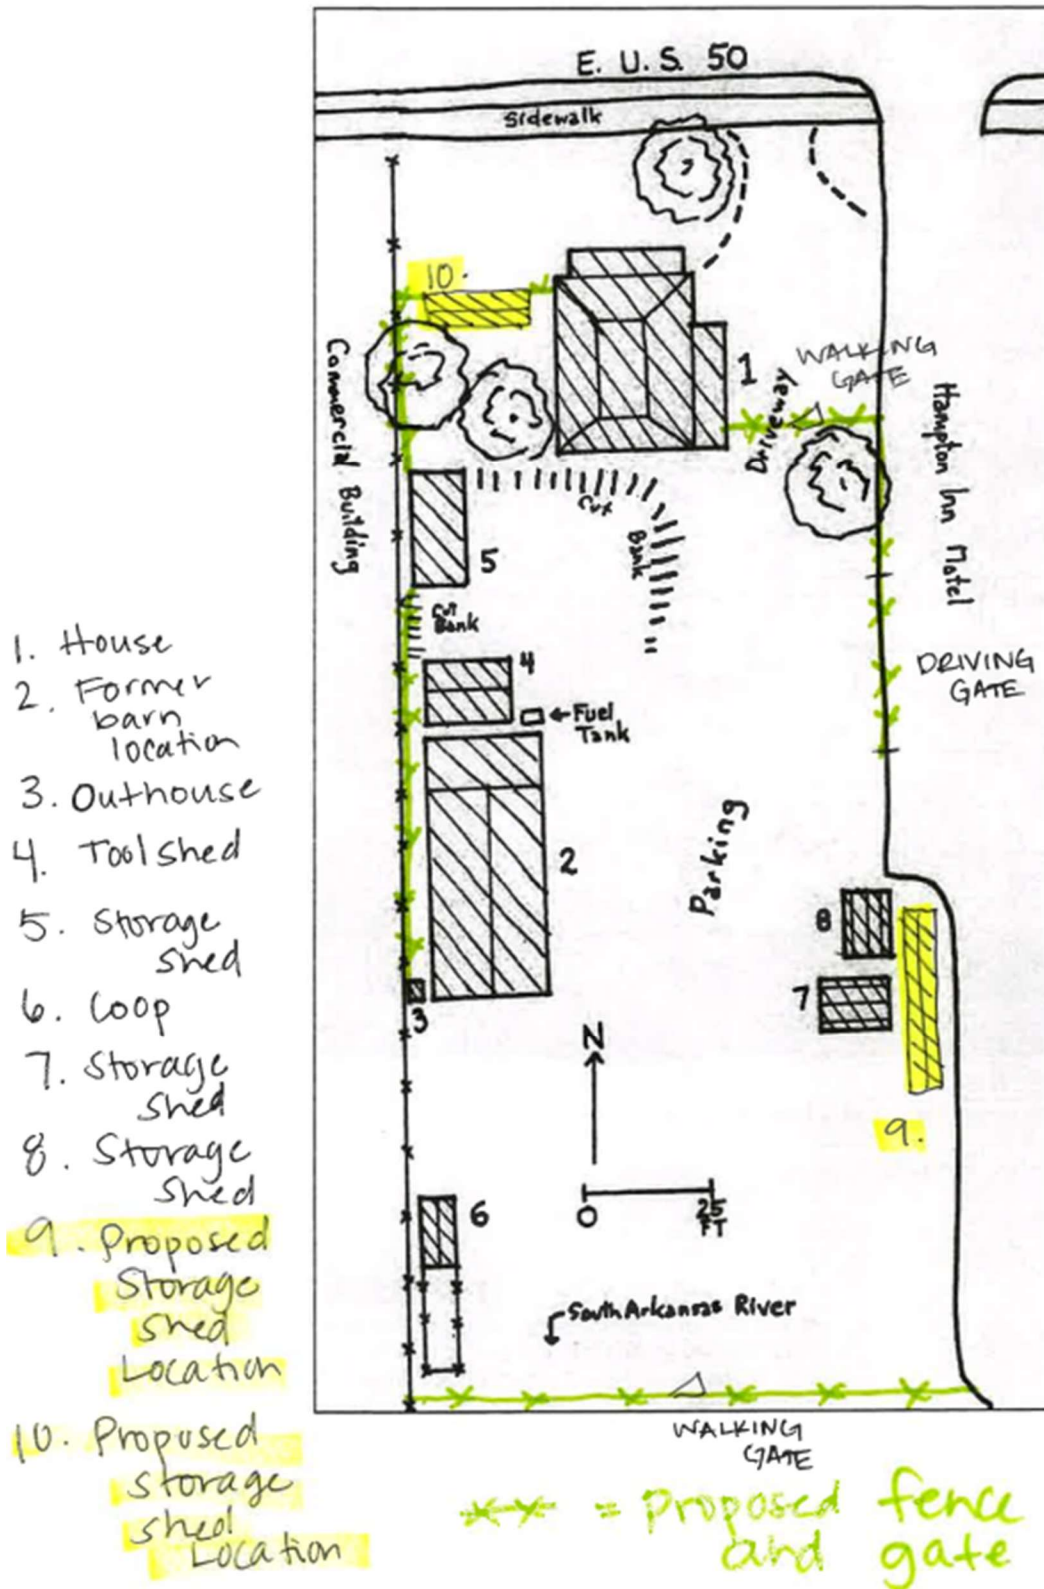 E. U.S. 50
Sidewalk
10.
Commercial Building
1
WALKING
GATE
Driveway
Hampton Inn Motel
Cut
Bank
5
Cut
Bank
4
Fuel
Tank
DRIVING
GATE
2
Parking
8
7
3
N
9.
0
25
FT
6
South Arkansas River
WALKING
GATE
1. House
2. Former
barn
location
3. Outhouse
4. Toolshed
5. Storage
shed
6. Coop
7. Storage
shed
8. Storage
shed
9. Proposed
Storage
shed
Location
10. Proposed
storage
shed
Location
= proposed fence
and gate